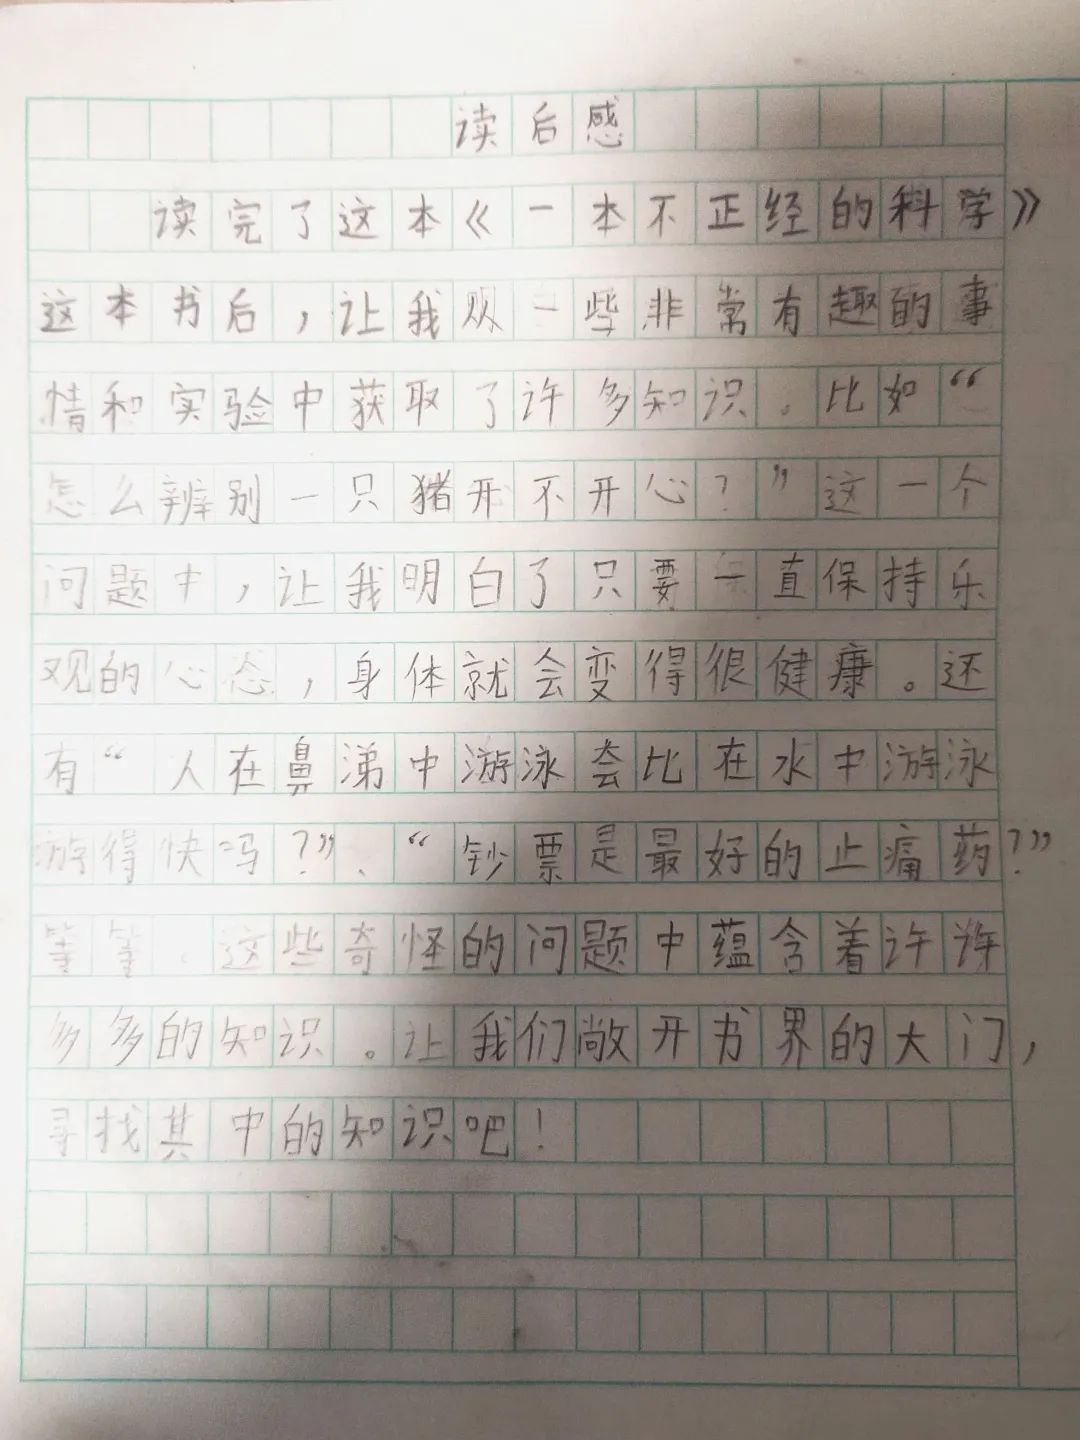 读后感
读完了这本《一本不正经的科学》
这本书后，让我从一些非常有趣的事
情和实验中获取了许多知识。比如“
怎么辨别一只猪开不开心？”这一个
问题中，让我明白了只要一直保持乐
观的心态，身体就会变得很健康。还
有“人在鼻涕中游泳会比在水中游泳
游得快吗？”、“钞票是最好的止痛药？”
等等。这些奇怪的问题中蕴含着许许
多多的知识。让我们敞开书界的大门，
寻找其中的知识吧！